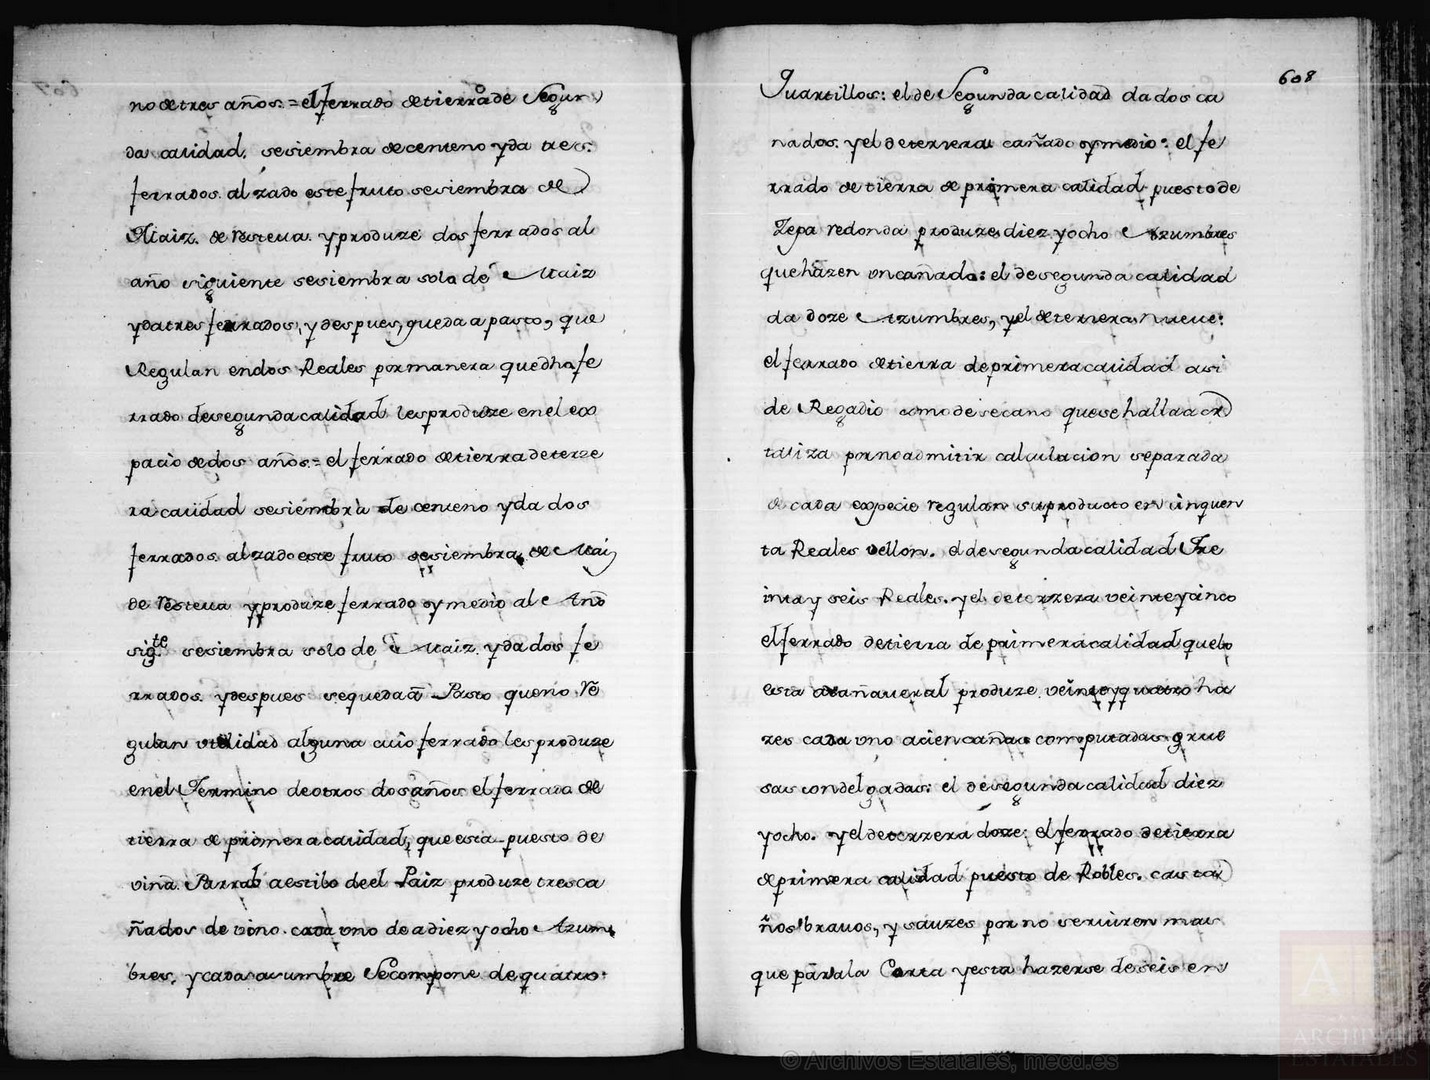 no de tres años = el ferrado de tierra de Segun
da calidad. sesiembra de centeno y da tres
ferrados. alzado este fruto sesiembra de
Maiz. de resteva y produze dos ferrados al
año siguiente sesiembra solo de Maiz
y da tres ferrados, y despues, queda a pasto, que
Regulan en dos Reales por manera que dho fe
rrado de segunda calidad les produze en el es
pacio de dos años = el ferrado de tierra de terze
ra calidad sesiembra de centeno y da dos
ferrados. alzado este fruto sesiembra de Maiz
de resteva y produze ferrado y medio al Año
sigte sesiembra solo de Maiz. y da dos fe
rrados y despues se queda a Pasto que no Re
gulan utilidad alguna cuio ferrado les produze
en el Termino de otros dos años el ferrado de
tierra de primera calidad, que esta puesto de
viña Parral a estilo de el Paiz produze tres ca
ñados de vino. cada uno de a diez y ocho Azum
bres, y cada azumbre Se compone de quatro
608
Quartillos: el de Segunda calidad da dos ca
nados. y el de terzera cañado y medio: el fe
rrado de tierra de primera calidad puesto de
Zepa redonda produze diez y ocho Azumbres
que hazen un cañado: el de segunda calidad
da doze Azumbres, y el de terzera, nueve:
el ferrado de tierra de primera calidad asi
de Regadio como de secano que se halla a or
taliza por no admitir calculacion separada
de cada expecie regulan su producto en zinquen
ta Reales vellon. el de segunda calidad Tre
inta y seis Reales. y el de terzera veinte y zinco
el ferrado de tierra de primera calidad que lo
esta a cañaveral produze veinte y quatro ha
zes cada uno a cien cañas computadas grue
sas con delgadas: el de segunda calidad diez
y ocho. y el de terzera doze: el ferrado de tierra
de primera calidad puesto de Robles. casta
ños bravos, y sauzes por no servir en mas
que para la Corta y esta hazerse de seis en
© Archivos Estatales, mecd.es
ARCHIVOS
ESTATALES